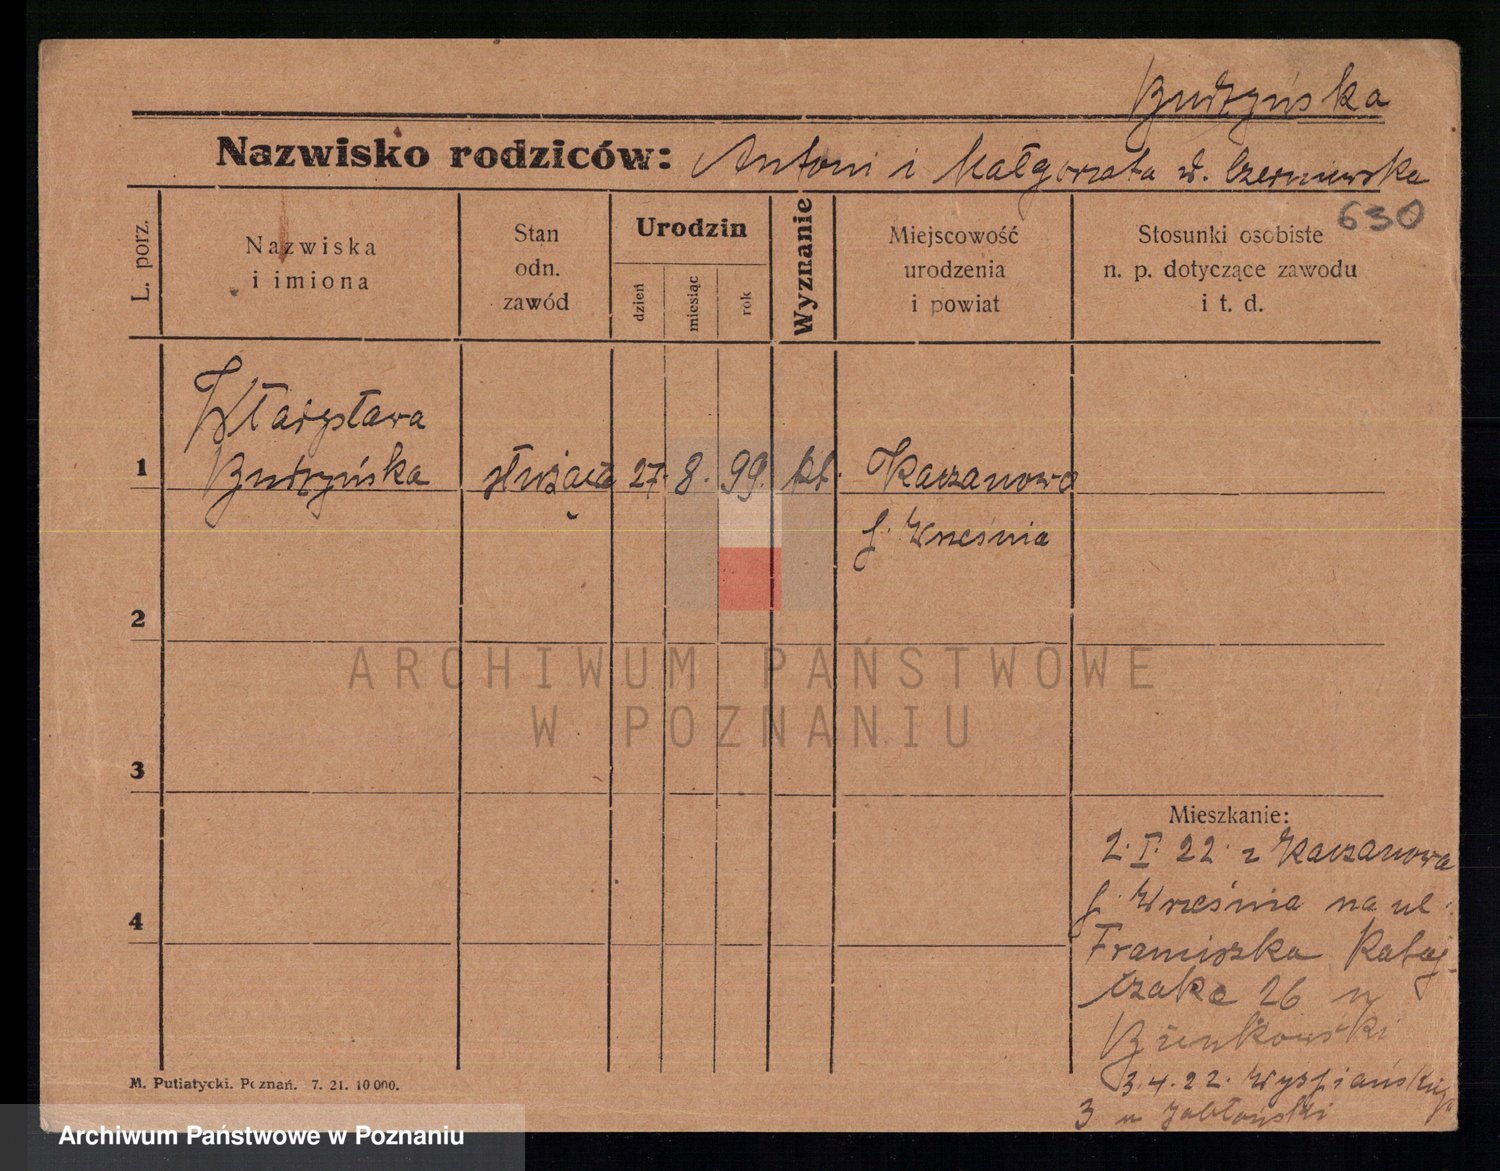 Budzyńska
Nazwisko rodziców: Antoni i Małgorzata d. Czerniewska
630
L. porz.
Nazwiska
i imiona
Stan
odn.
zawód
Urodzin
dzień
miesiąc
rok
Wyznanie
Miejscowość
urodzenia
i powiat
Stosunki osobiste
n. p. dotyczące zawodu
i t. d.
Władysława
1 Budzyńska służąca 27. 8. 99. kt. Kaczanowo
p. Września
2
ARCHIWUM PAŃSTWOWE
W POZNANIU
3
Mieszkanie:
2. I. 22. z Kaczanowa
p. Września na ul.
4
FranciszkaRataj-
czaka 26 u
Bieńkowski
3.4.22. Wyspiańskiego
3 u Jabłoński
M. Putiatycki. Poznań. 7. 21. 10 000.
Archiwum Państwowe w Poznaniu